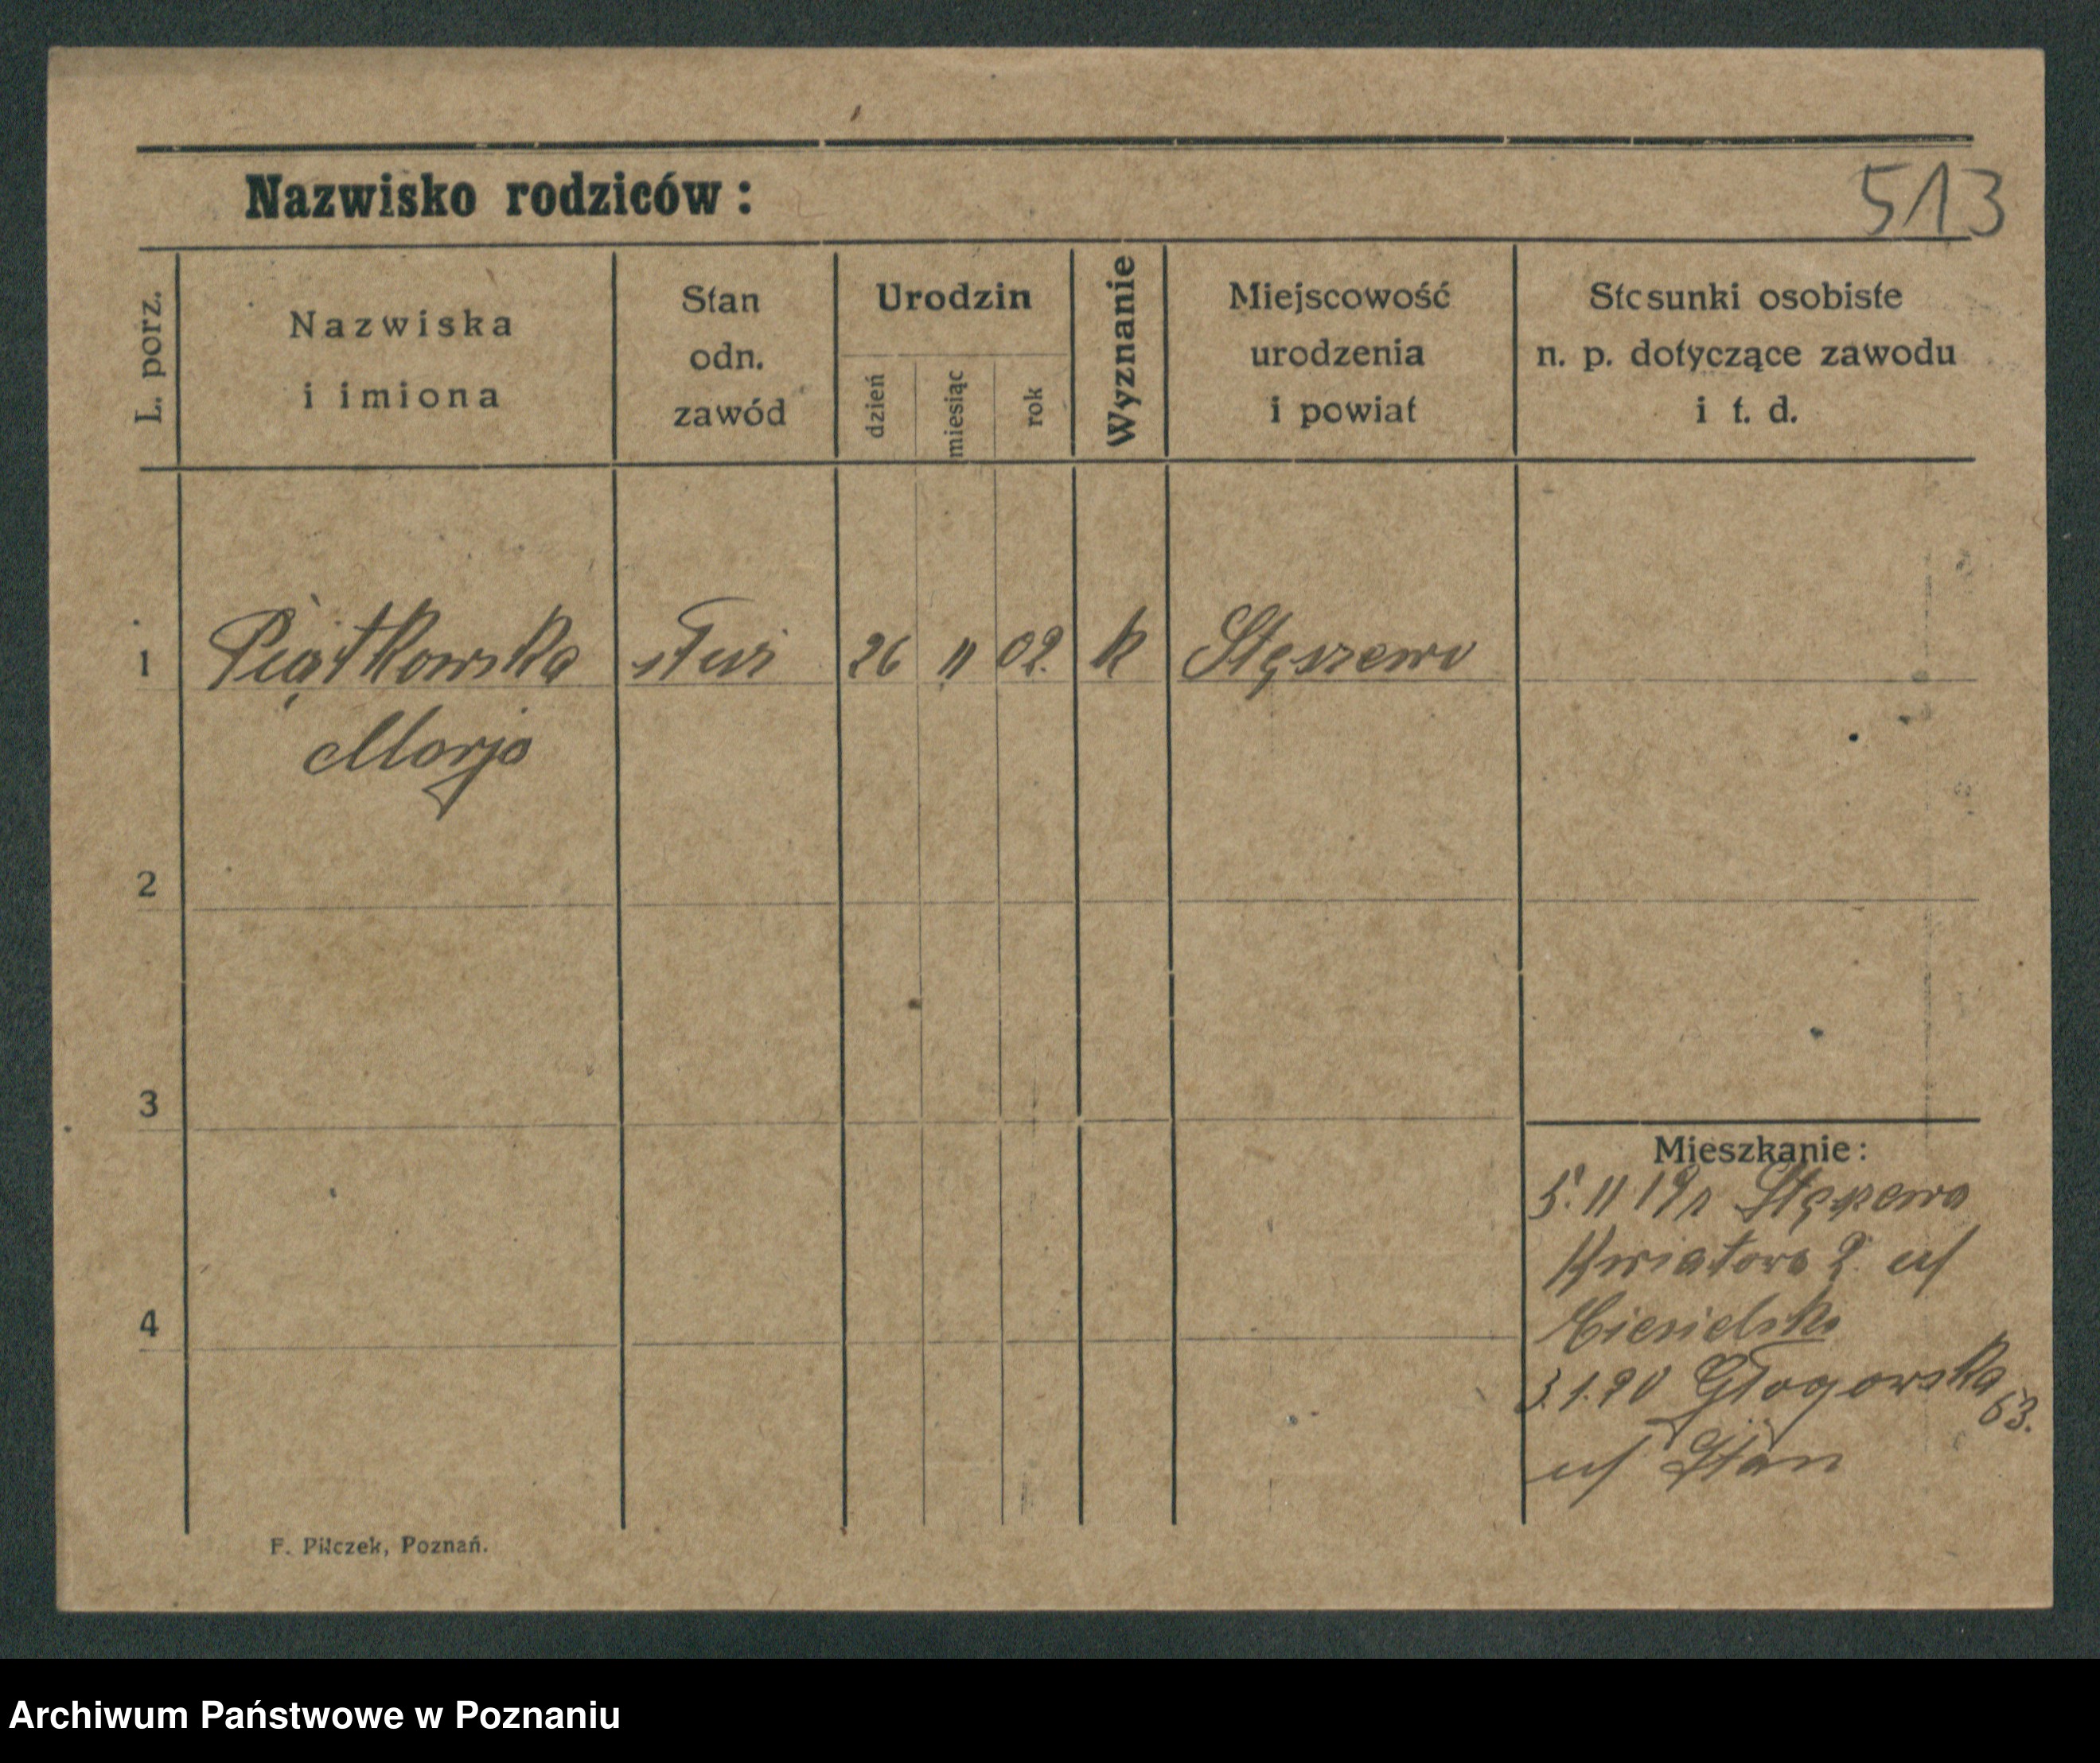 513
Nazwisko rodziców:
L. porz.
Nazwiska
i imiona
Stan
odn.
zawód
Urodzin
dzień
miesiąc
rok
Wyznanie
Miejscowość
urodzenia
i powiat
Stosunki osobiste
n. p. dotyczące zawodu
i t. d.
1 Piątkowska służ 26 11 02. k Stęszewo
Marja
2
3
4
Mieszkanie:
5. 11 19 r Stęszewo
Kwiatowa 2
3.1.20 Głogowska 63.
F. Pilczek, Poznań.
Archiwum Państwowe w Poznaniu